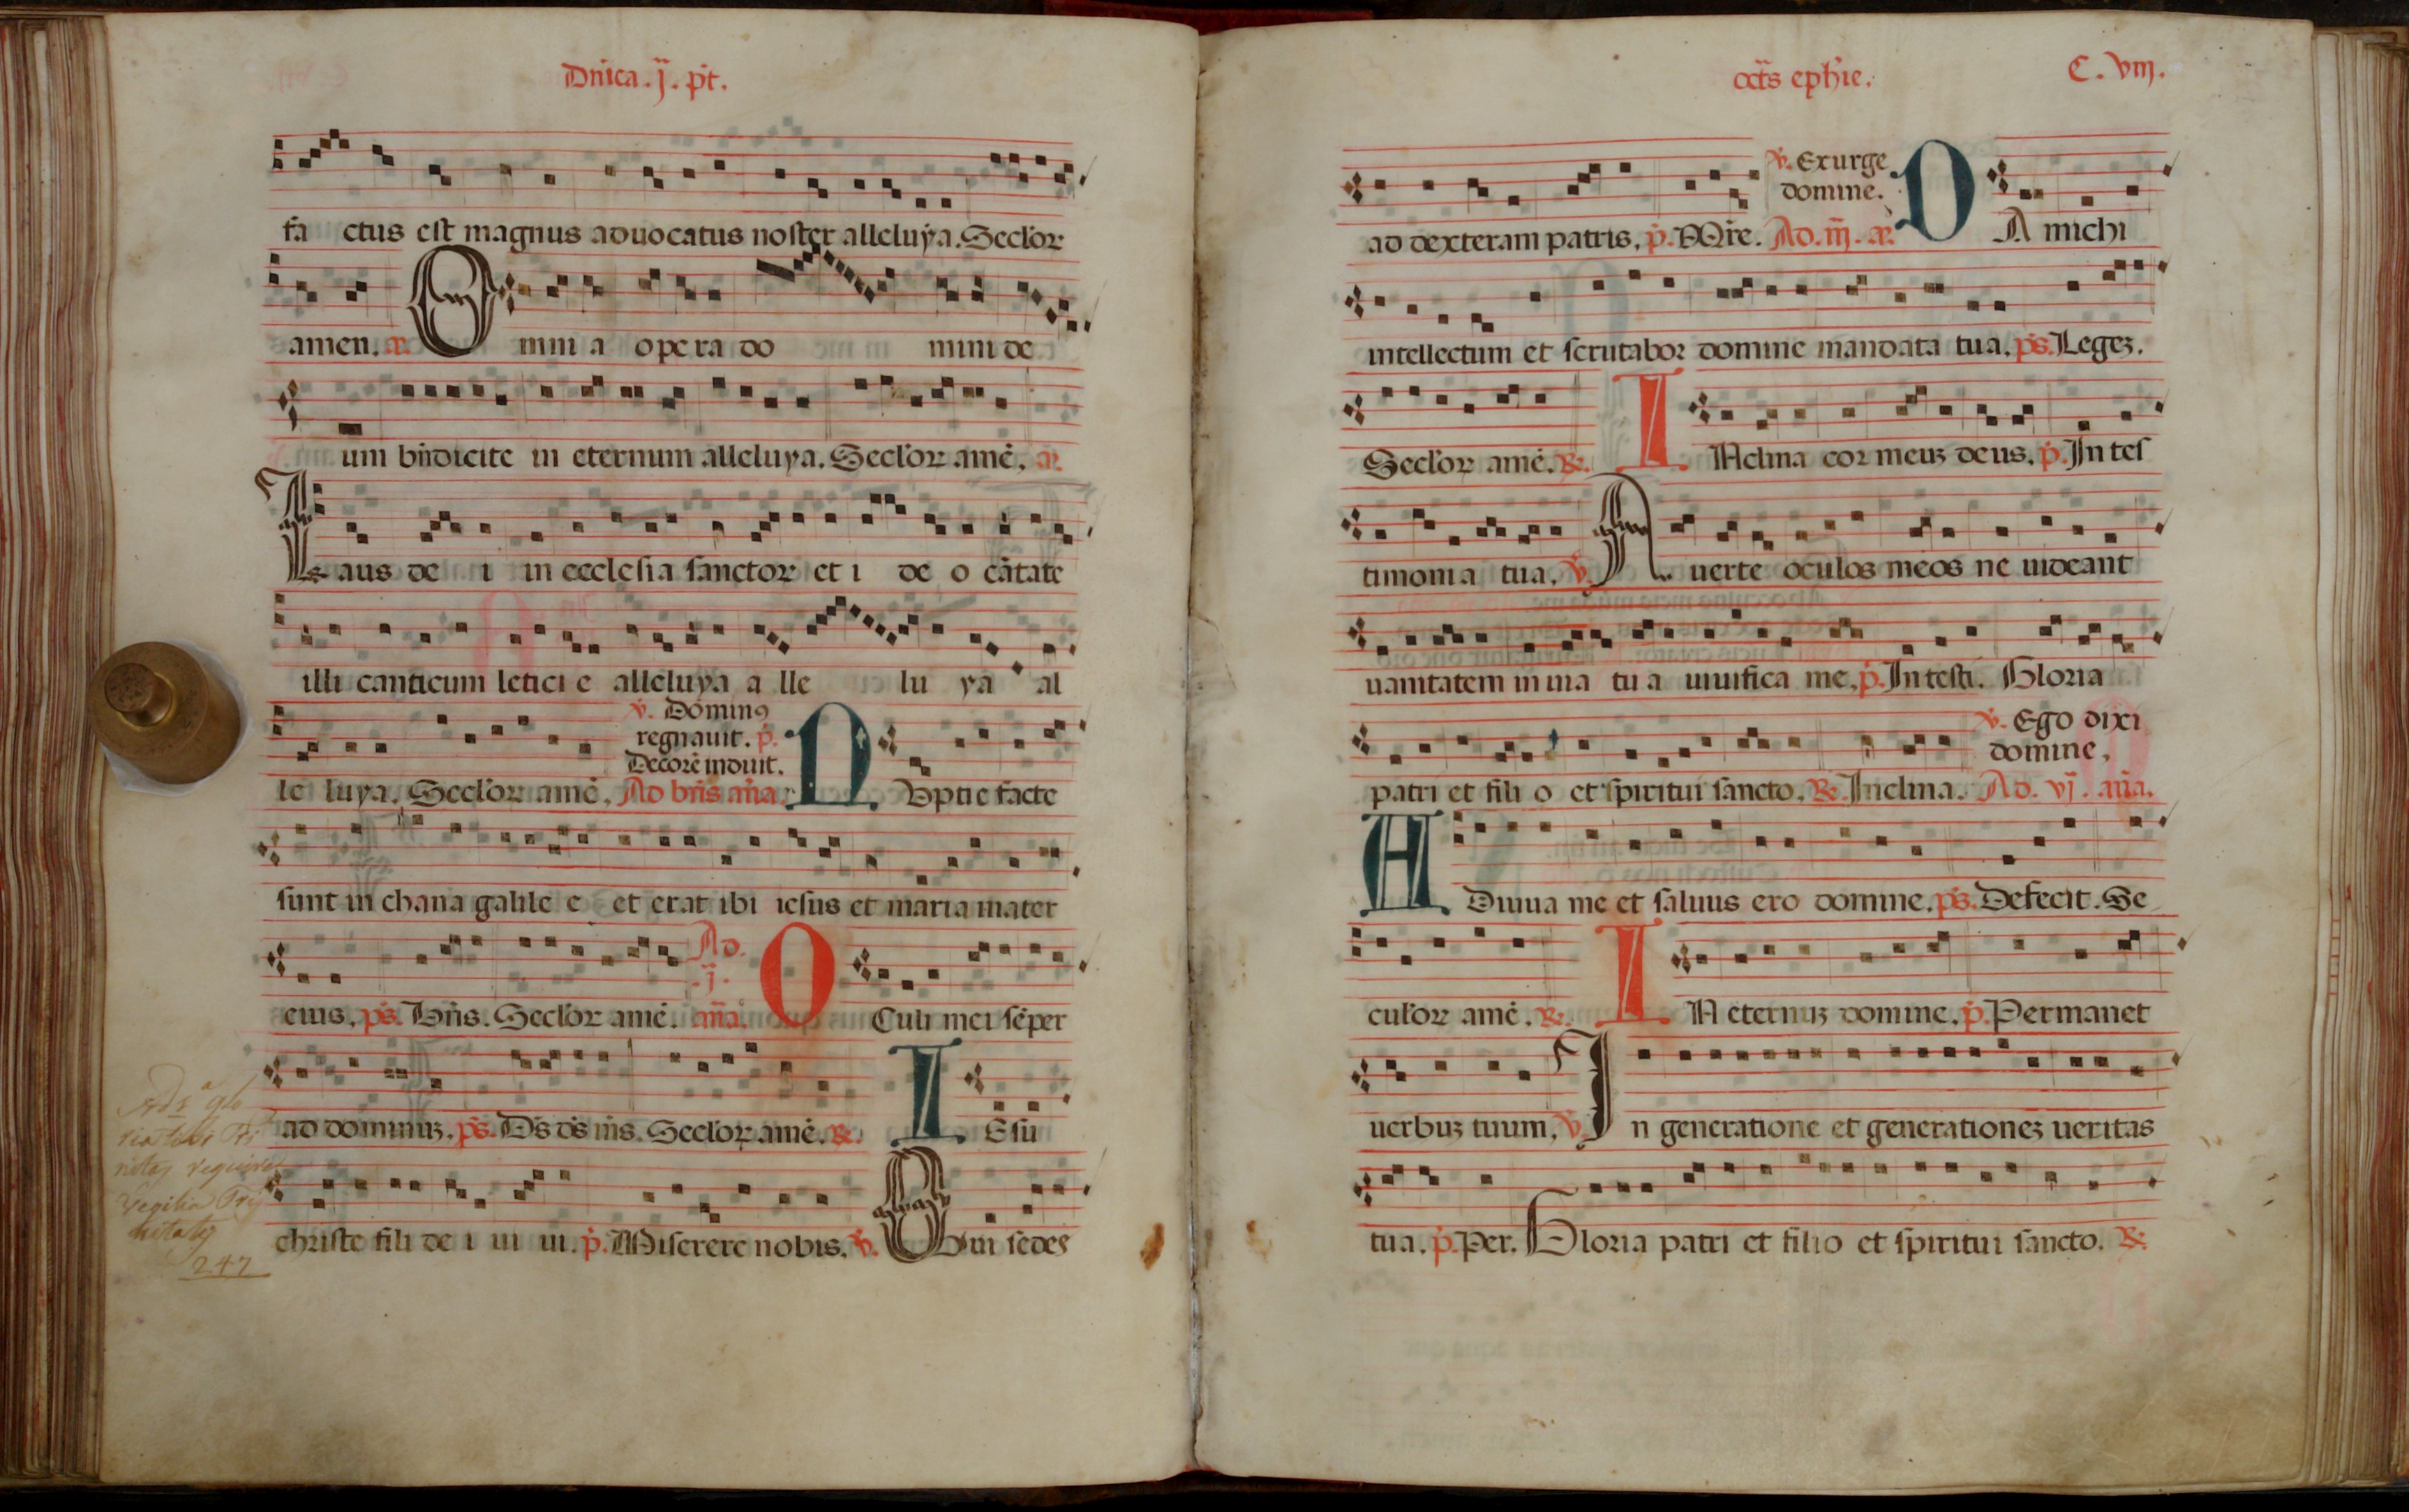 Dnica . ij . pt.
fa ctus est magnus aduocatus noster alleluya. Seclor
amen. a. Omni a opera do mini de
um bndicite in eternum alleluya. Seclor ame. a.
Laus de i in ecclesia sanctor et i de o catate
illi canticum letici e alleluya a lle lu ya al
v. Dominꝰ
regnauit. p.
Decore induit.
le luya. Seclor ame. Ad bns ana. Nuptie facte
sunt in chana galile e et erat ibi iesus et maria mater
Ad.
.j.
eius. ps. Bns. Seclor ame. ana. OCuli mei seper
ad dominuz. ps. Ds ds ms. Seclor ame. R. IEsu
christe fili de i ui ui. p. Miserere nobis. v. Qui sedes
247
octs ephie. C. viij.
v. Exurge
domine.
ad dexteram patris. p. Mre. Ad. iij. a. DA michi
intellectum et scrutabor domine mandata tua. ps. Legez.
Seclor ame. R. INclina cor meuz deus. p. In tes
timonia tua. v. Auerte oculos meos ne uideant
uanitatem in uia tu a uiuifica me. p. In testi. Gloria
v. Ego dixi
domine.
patri et fili o et spiritui sancto. R. Inclina. Ad. vj. ana.
ADiuua me et saluus ero domine. ps. Defecit. Se
culor ame. R. IN eternuz domine. p. Permanet
uerbuz tuum. v. In generatione et generationez ueritas
tua. p. Per. Gloria patri et filio et spiritui sancto. R.